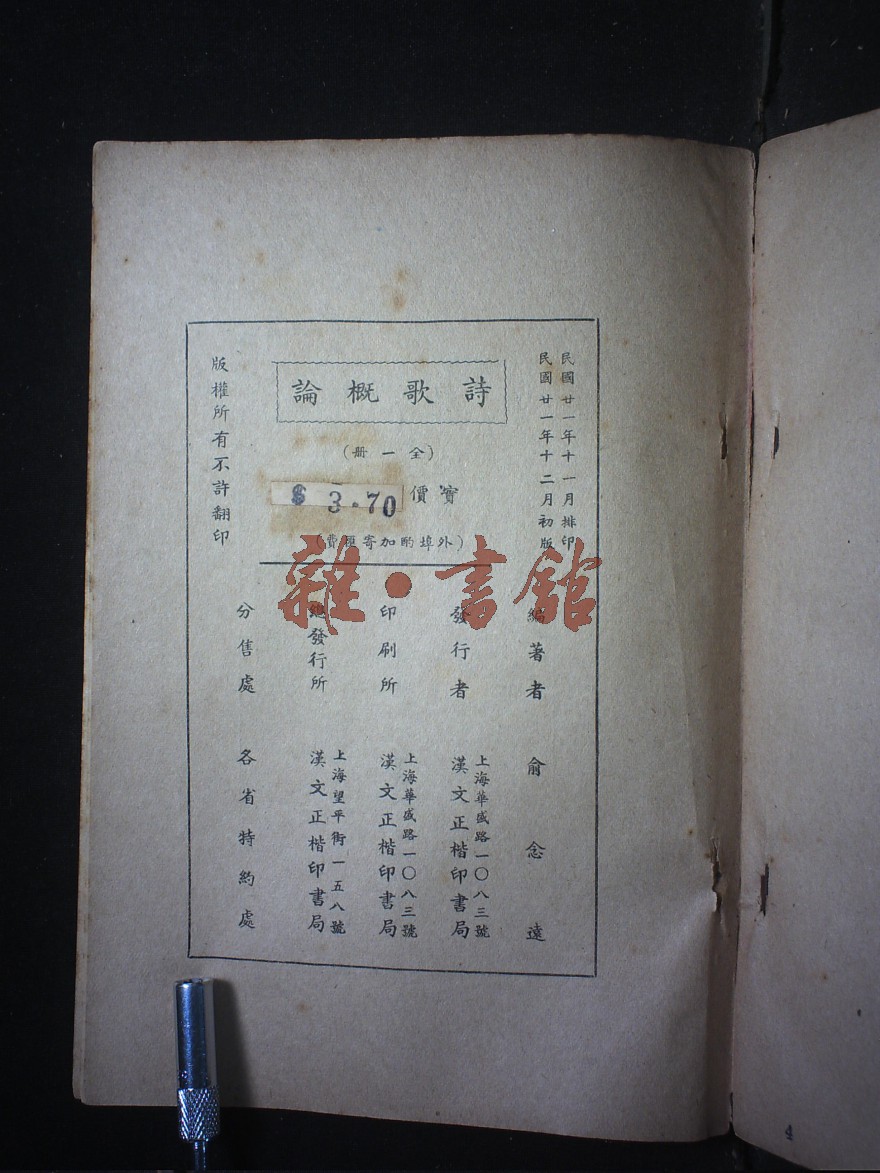 民國廿一年十一月排印
民國廿一年十二月初版
詩歌概論
(全一冊)
實價
$ 3.70
(外埠酌加寄費)
編著者 俞念遠
發行者 上海華盛路一〇八三號
漢文正楷印書局
印刷所 上海華盛路一〇八三號
漢文正楷印書局
總發行所 上海望平街一五八號
漢文正楷印書局
分售處 各省特約處
版權所有不許翻印
雜·書館
4